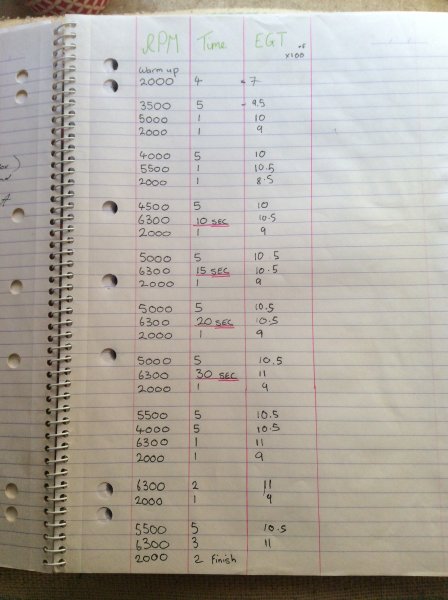 RPM Time EGT °F x100
Warm up
2000 4 - 7
3500 5 - 9.5
5000 1 10
2000 1 9
4000 5 10
5500 1 10.5
2000 1 8.5
4500 5 10
6300 10 SEC 10.5
2000 1 9
5000 5 10.5
6300 15 SEC 10.5
2000 1 9
5000 5 10.5
6300 20 SEC 10.5
2000 1 9
5000 5 10.5
6300 30 SEC 11
2000 1 9
5500 5 10.5
4000 5 10.5
6300 1 11
2000 1 9
6300 2 11
2000 1 9
5500 5 10.5
6300 3 11
2000 2 Finish